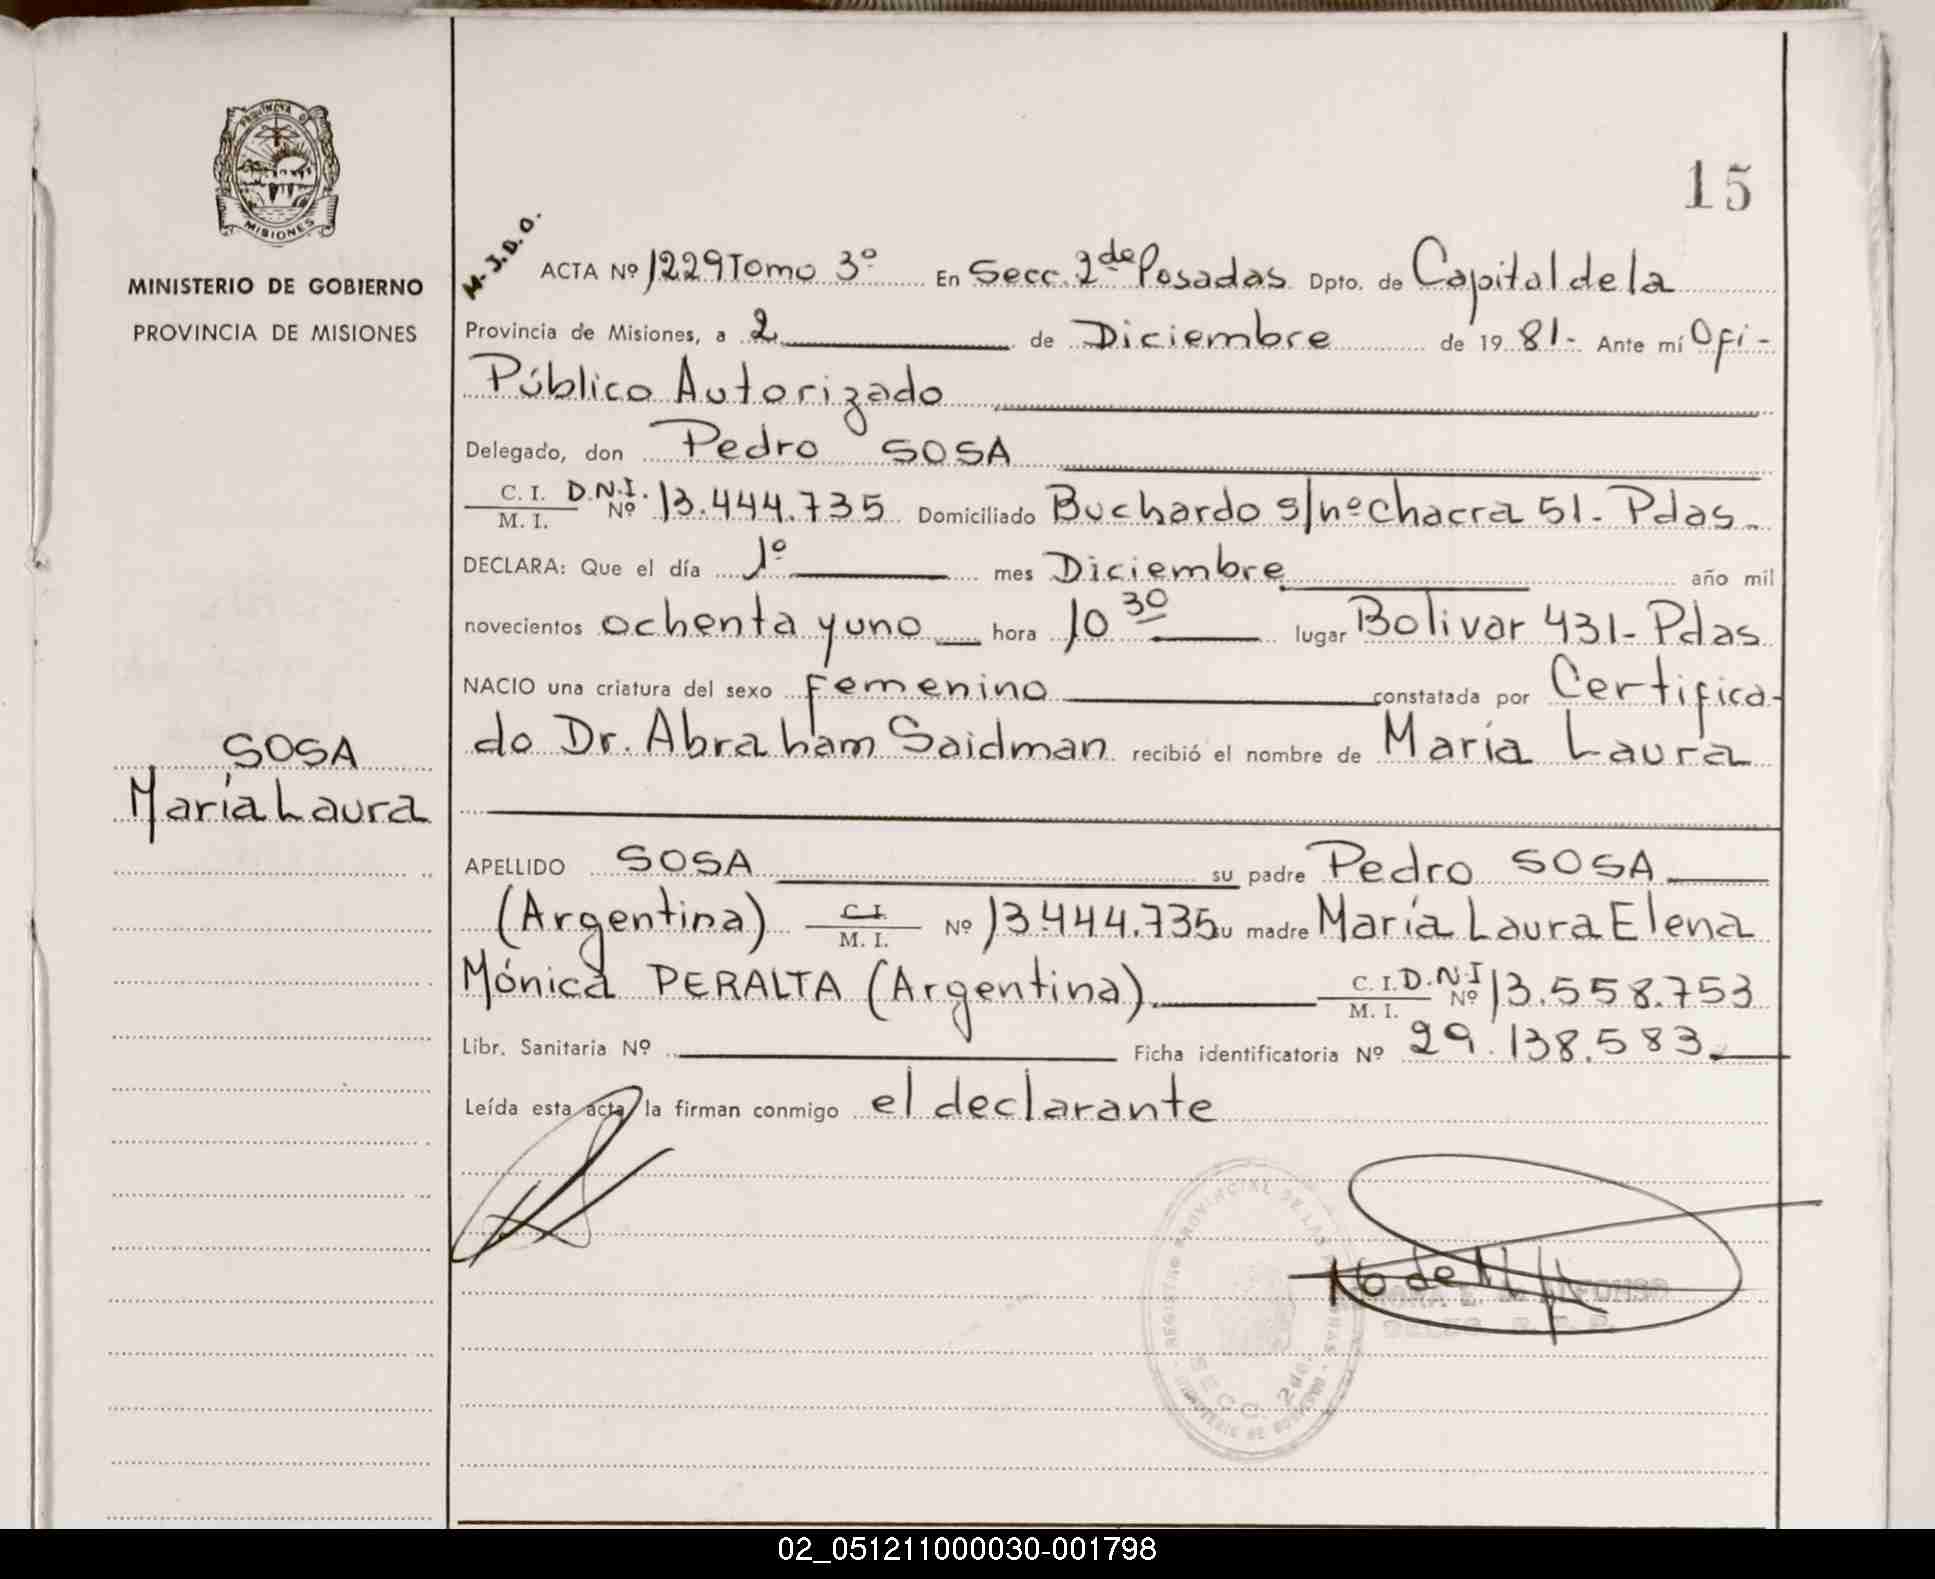 PROVINCIA DE
MISIONES
MINISTERIO DE GOBIERNO
PROVINCIA DE MISIONES
SOSA
María Laura
15
M.J.D.O.
ACTA Nº 1229 Tomo 3º En Secc. 2da Posadas Dpto. de Capital de la
Provincia de Misiones, a 2 de Diciembre de 1981- Ante mí Ofi-
Público Autorizado
Delegado, don Pedro SOSA
C. I. M. I. D.N.I. Nº 13.444.735 Domiciliado Buchardo s/nº chacra 51- Pdas.
DECLARA: Que el día 1º mes Diciembre año mil
novecientos ochenta y uno hora 10 30 lugar Bolivar 431- Pdas
NACIO una criatura del sexo femenino constatada por Certifica-
do Dr. Abraham Saidman recibió el nombre de María Laura
APELLIDO SOSA su padre Pedro SOSA
(Argentina) C. I. M. I. Nº 13.444.735 su madre María Laura Elena
Mónica PERALTA (Argentina). C. I. M. I. D.N.I Nº 13.558.753
Libr. Sanitaria Nº Ficha identificatoria Nº 29.138.583.
Leída esta acta, la firman conmigo el declarante
REGISTRO PROVINCIAL DE LAS PERSONAS
SECC. 2da.
MINISTERIO DE GOBIERNO
02_051211000030-001798